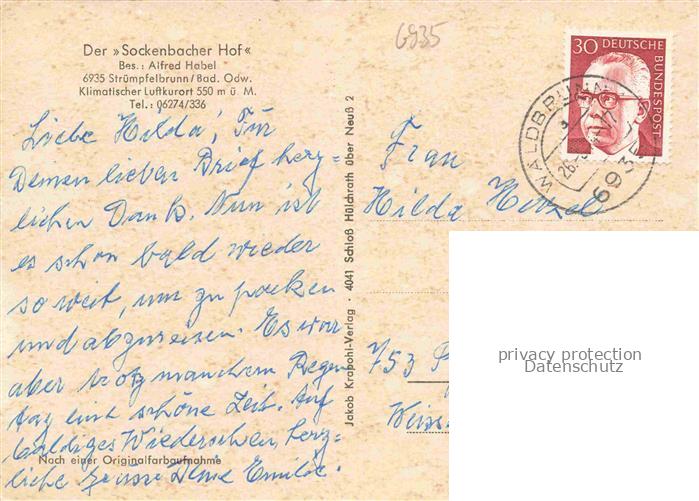 6935
Der »Sockenbacher Hof«
Bes.: Alfred Habel
6935 Strümpfelbrunn/Bad. Odw.
Klimatischer Luftkurort 550 m ü M.
Tel.: 06274/336
Liebe Hilda, Für
Deinen lieben Brief herz-
lichen Dank. Nun ist
es schon bald wieder
so weit, um zu packen
und abzureisen. Es war
aber trotz manchem Regen
tag eine schöne Zeit. Auf
baldiges Wiedersehen, herz-
liche Grüsse Deine Emilie.
Nach einer Originalfarbaufnahme
Jakob Krapohl-Verlag · 4041 Schloß Hülchrath über Neuß 2
30 DEUTSCHE
BUNDESPOST
WALDBRUNN
693
Frau
Hilda
753 P
Weiss
privacy protection
Datenschutz